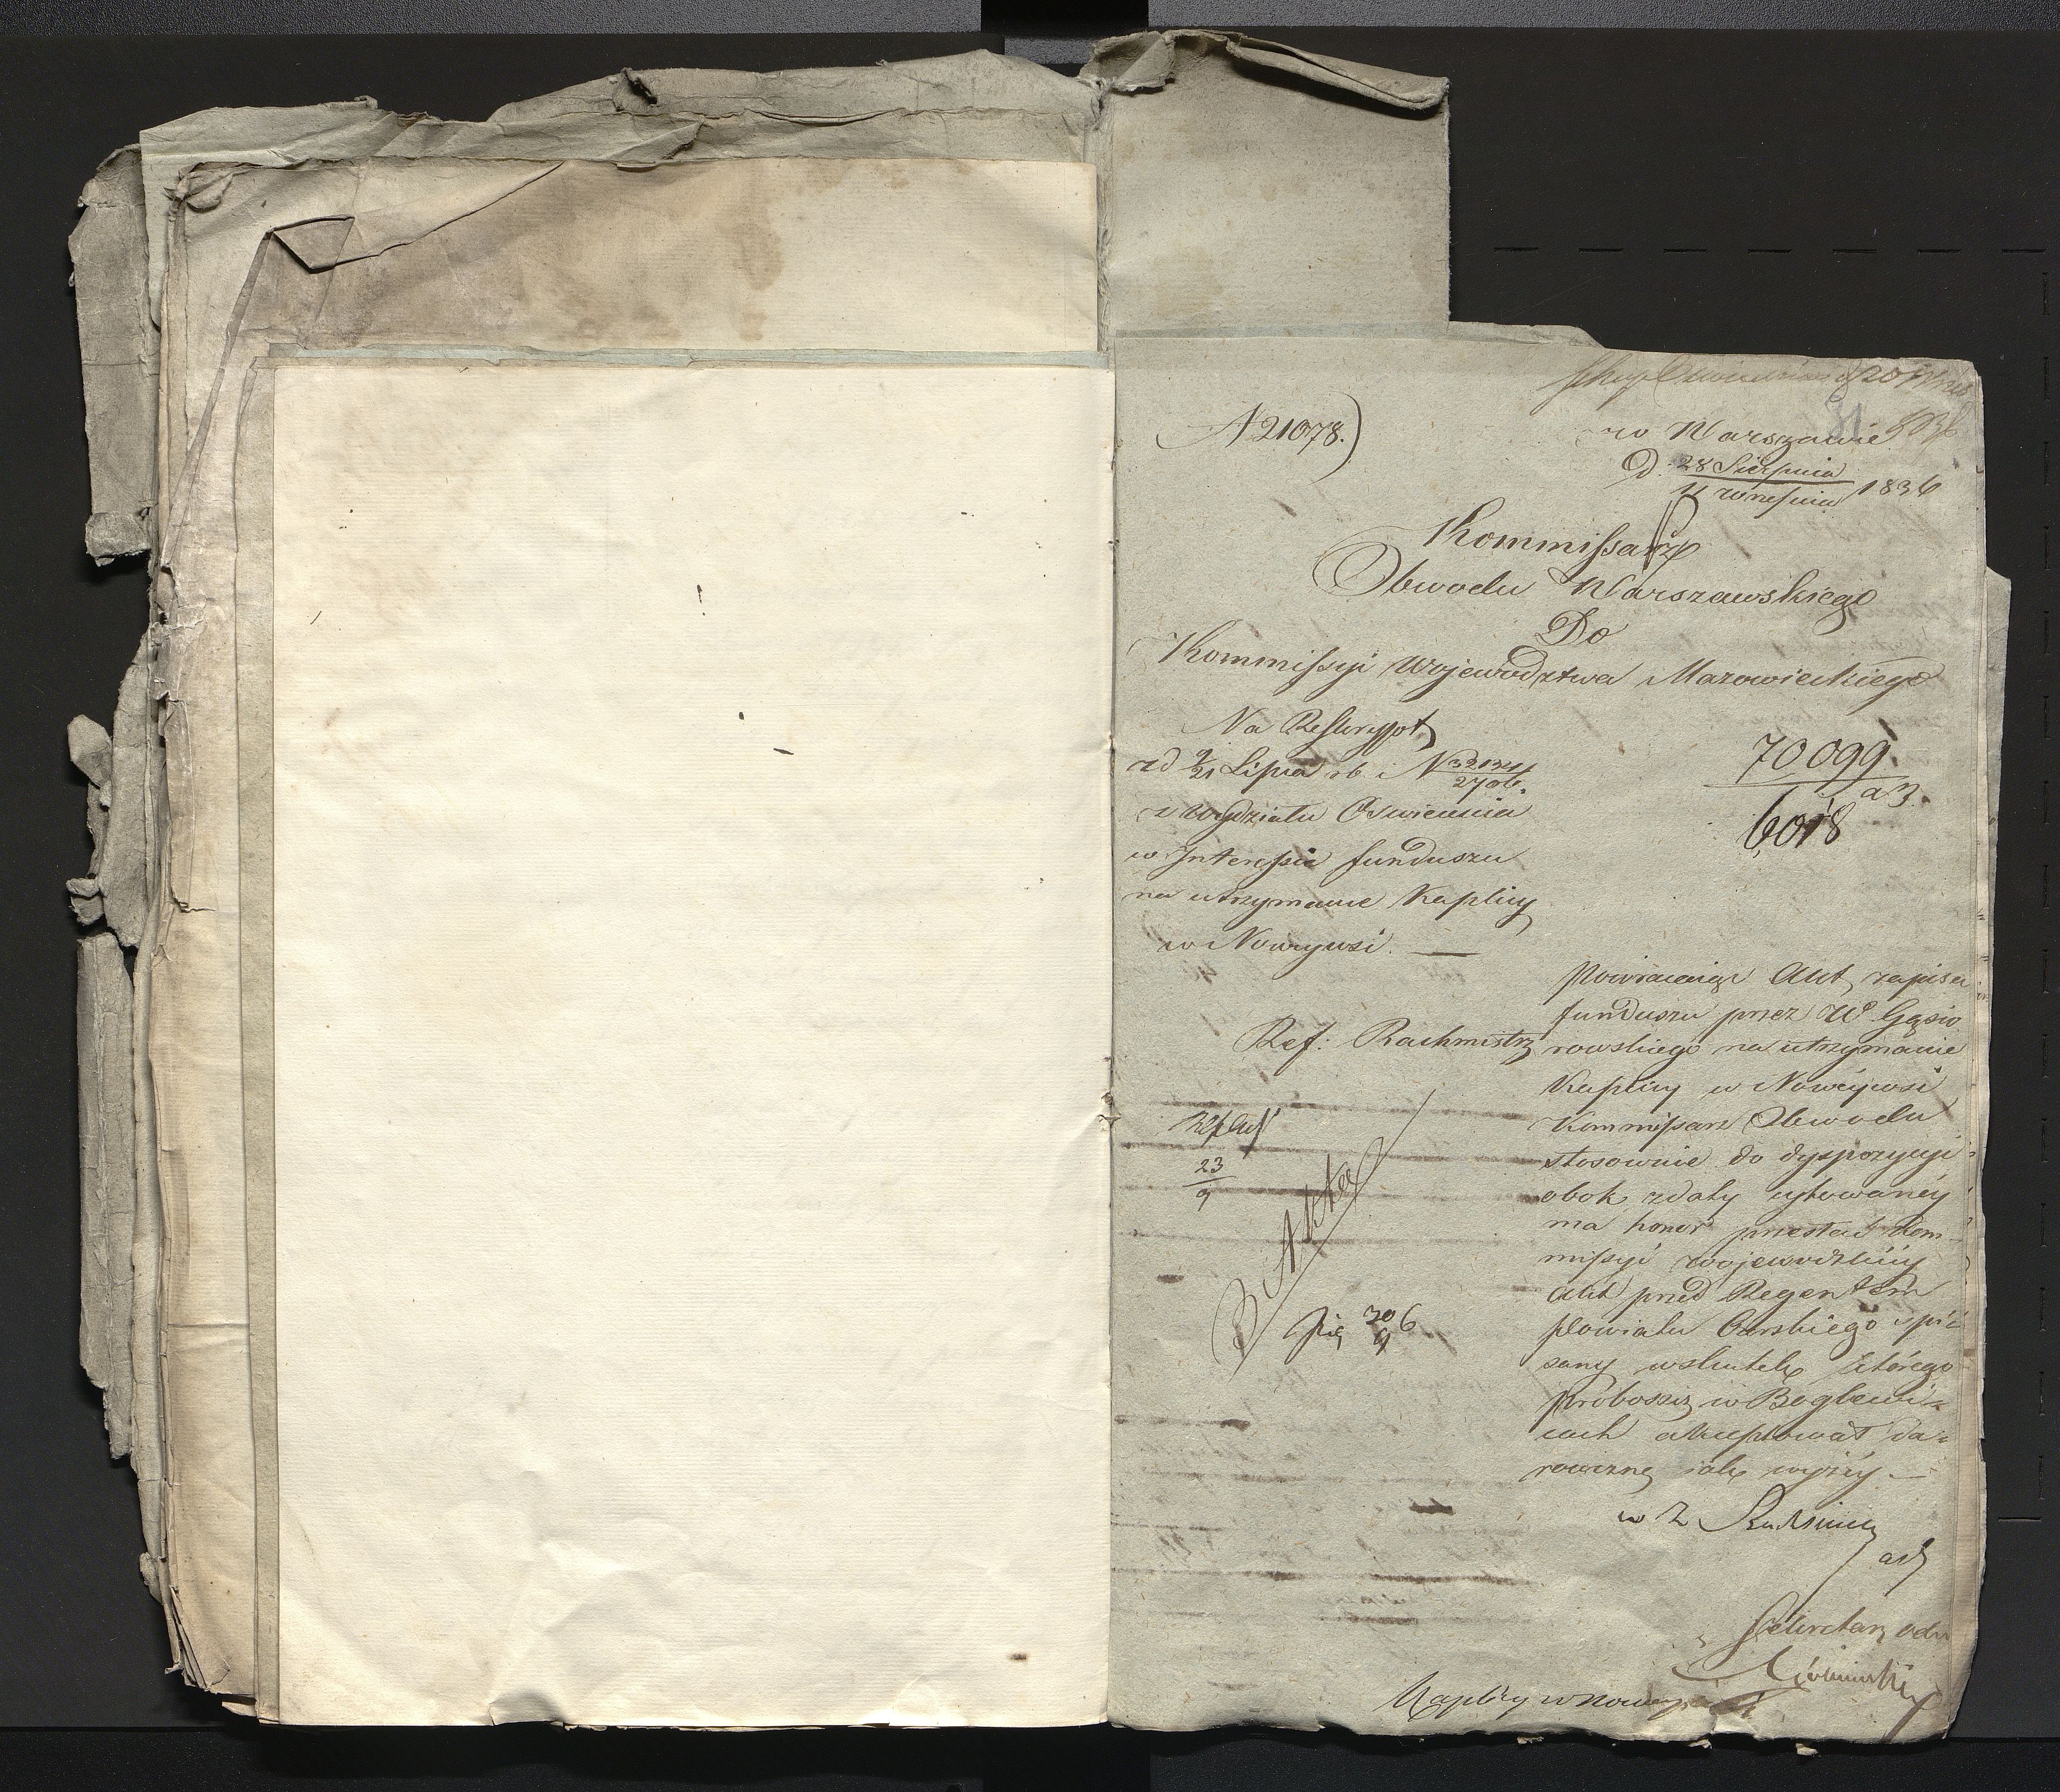 N 21078.)
w Warszawie
D. 28 Sierpnia
11 września 1836
31
Kommissarz
Obwodu Warszawskiego
Do
Kommissyi Wojewodztwa Mazowieckiego
Na Reskrypt
z d 9/21 Lipca r b i N
z Wydziału Oswiecenia
w Interessie funduszu
na utrzymanie Kaplicy
w Nowejwsi. —
70099.
a3.
6018
Ref: Rachmistrz
23
9
Akta
Powracaiąc Akt zapisu
funduszu przez Wo Gąsio
rowskiego na utrzymanie
Kaplicy w Nowejwsi
Kommissarz Obwodu
stosownie do dyspozycyi
obok z daty cytowaney
ma honor przesłać Kom
missyi wojewodzkiey
akt przed Regentem
Powiatu Czerskiego spi=
sany w skutek którego
Proboszcz w Boglewi=
cach akceptował da=
rowiznę jak wyżey —
w Z
Sekretarz
Kaplicy w Nowey